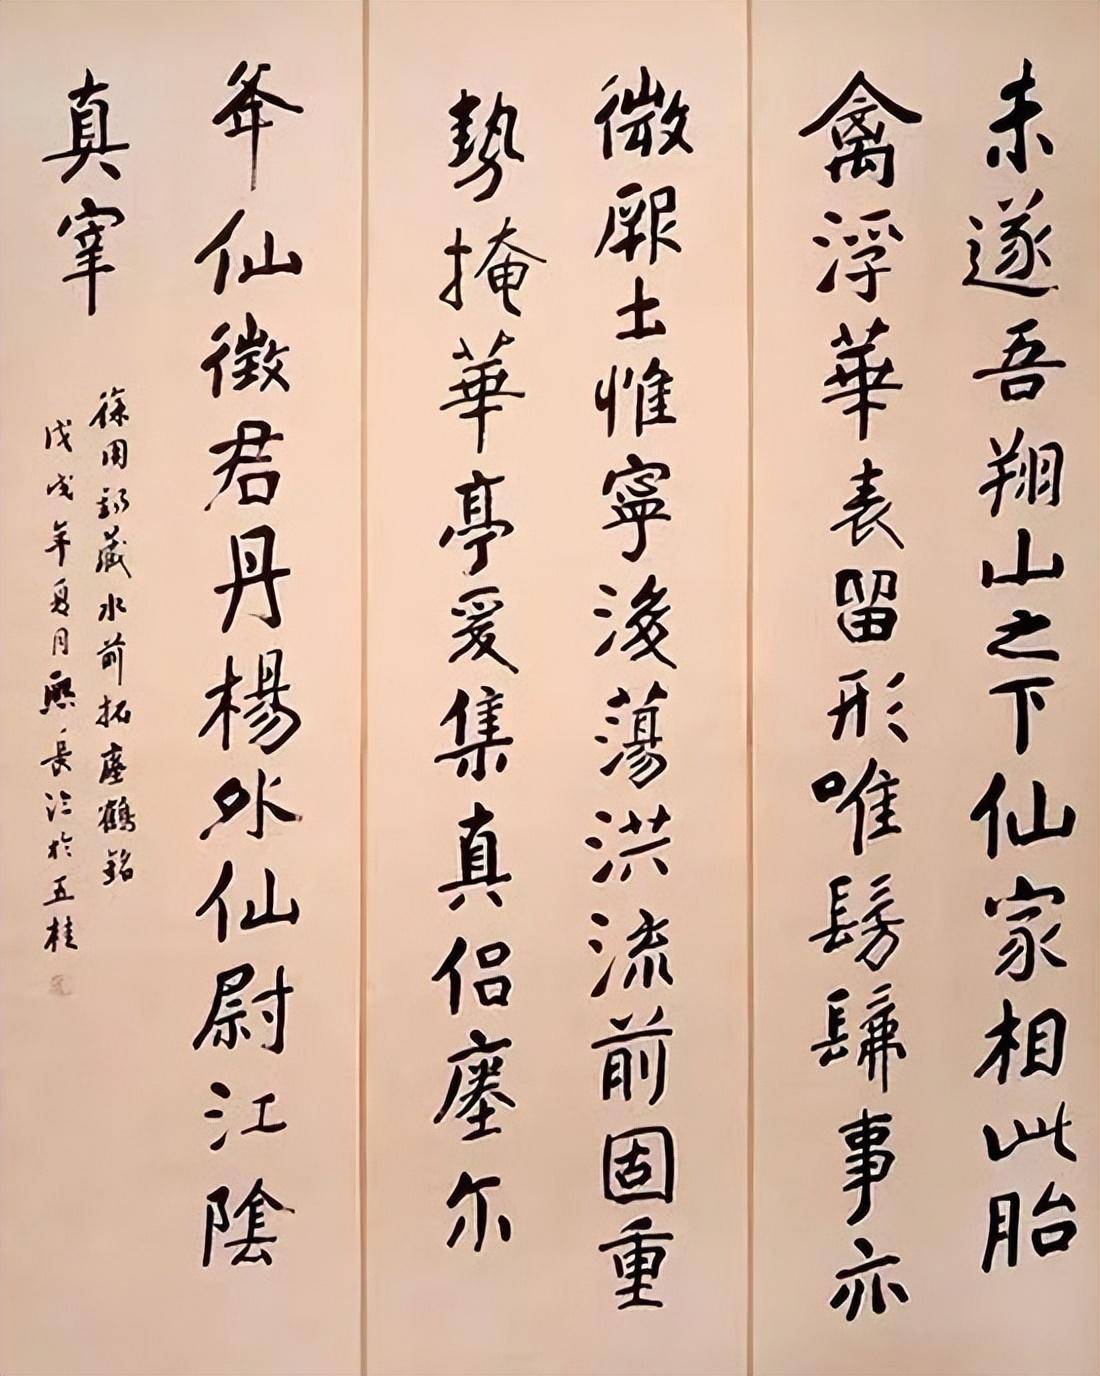 未遂吾翔山之下仙家相此胎
禽浮華表留形唯髣髴事亦
微厥土惟寧後蕩洪流前固重
勢掩華亭爰集真侶瘞尔
夅仙徵君丹楊外仙尉江陰
真宰
徐用錫藏水前拓瘞鶴銘
戊戌年夏月 長 於五桂